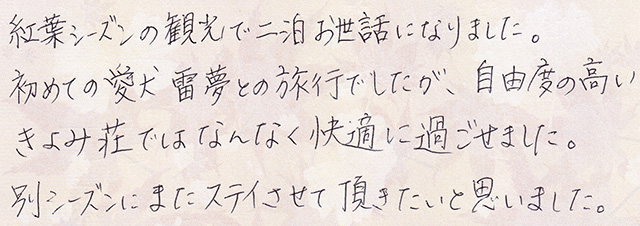 紅葉シーズンの観光で二泊お世話になりました。
初めての愛犬雷夢との旅行でしたが、自由度の高い
きよみ荘ではなんなく快適に過ごせました。
別シーズンにまたステイさせて頂きたいと思いました。